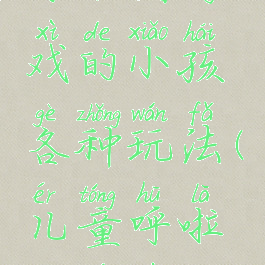 xì de xiǎo hái
戏的小孩
gè zhǒng wán fǎ
各种玩法(
ér tóng hū lā
儿童呼啦